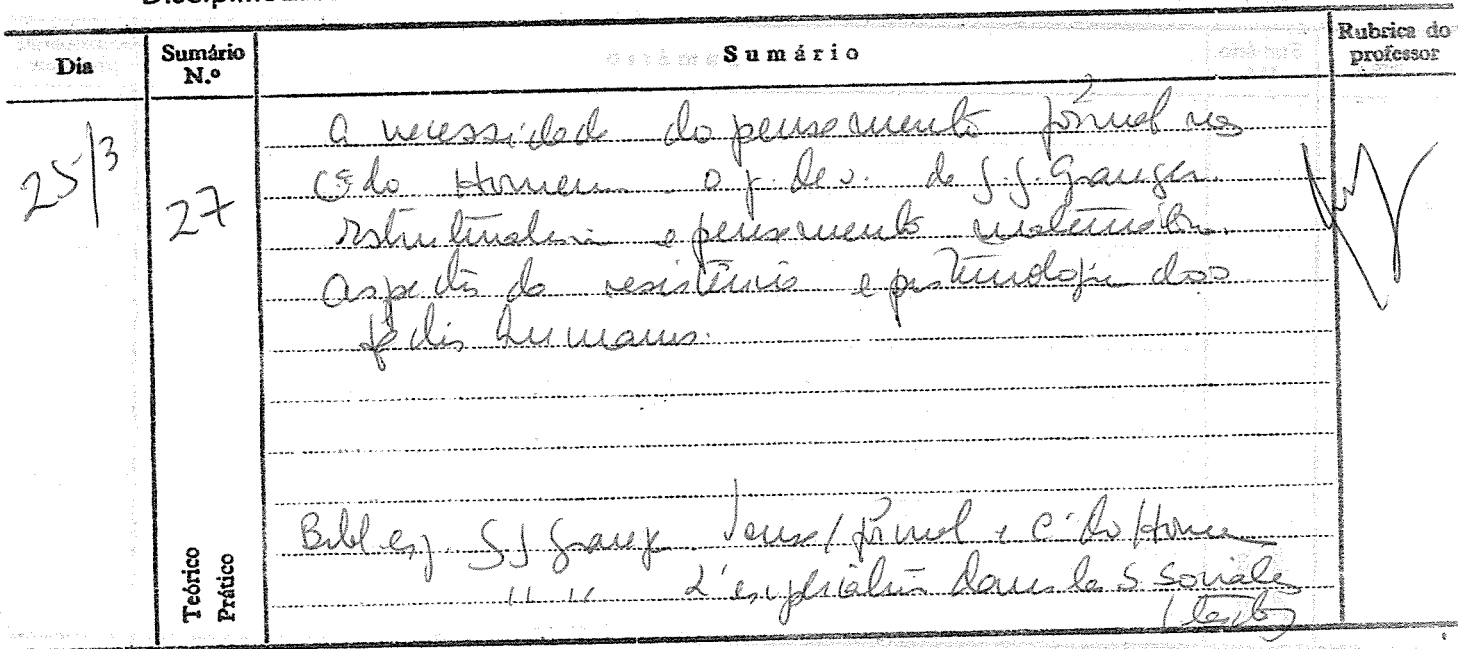 Dia
Sumário N.º
Sumário
Rubrica do professor
25/3
27
a necessidade do pensamento formal nas
C.as do Homem. o p. de v. de G. G. Granger.
Estruturalismo e pensamento matemático.
Aspectos da resistência epistemologia dos
factos humanos.
Bibl. esp. G G Grang Pens/ formal e C. do Homem
" " L'explication dans les S. Sociales
(texto)
Teórico
Prático